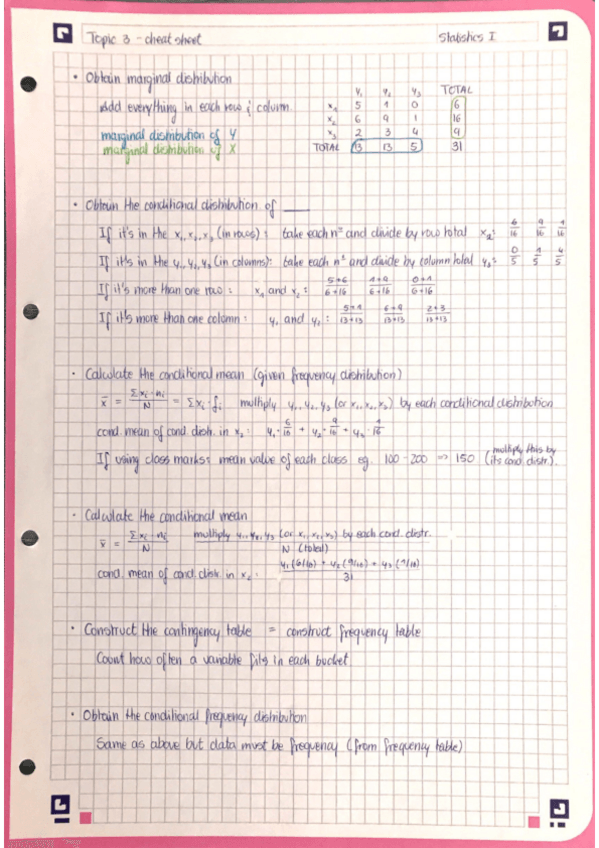 Topic 3 - cheat sheet Statistics I
• Obtain marginal distribution
Add everything in each row & column.
marginal distribution of Y
marginal distribution of X
y₁ y₂ y₃ TOTAL
x₁ 5 1 0 6
x₂ 6 9 1 16
x₃ 2 3 4 9
TOTAL 13 13 5 31
• Obtain the conditional distribution of ____
If it's in the x₁, x₂, x₃ (in rows): take each nº and divide by row total x₂: 6/16 9/16 1/16
If it's in the y₁, y₂, y₃ (in columns): take each nº and divide by column total y₃: 0/5 1/5 4/5
If it's more than one row: x₁ and x₂: 5+6/6+16 1+9/6+16 0+1/6+16
If it's more than one column: y₁ and y₂: 5+1/13+13 6+9/13+13 2+3/13+13
• Calculate the conditional mean (given frequency distribution)
x̄ = Σxᵢ·nᵢ/N = Σxᵢ·fᵢ multiply y₁, y₂, y₃ (or x₁, x₂, x₃) by each conditional distribution
cond. mean of cond. distr. in x₂: y₁·6/16 + y₂·9/16 + y₃·1/16
If using class marks: mean value of each class eg. 100-200 => 150 (multiply this by its cond. distr.).
• Calculate the conditional mean
x̄ = Σxᵢ·nᵢ/N multiply y₁, y₂, y₃ (or x₁, x₂, x₃) by each cond. distr./N (total)
cond. mean of cond. distr. in x₂: y₁(6/16) + y₂(9/16) + y₃(1/16)/31
• Construct the contingency table = construct frequency table
Count how often a variable fits in each bucket
• Obtain the conditional frequency distribution
Same as above but data must be frequency (from frequency table)